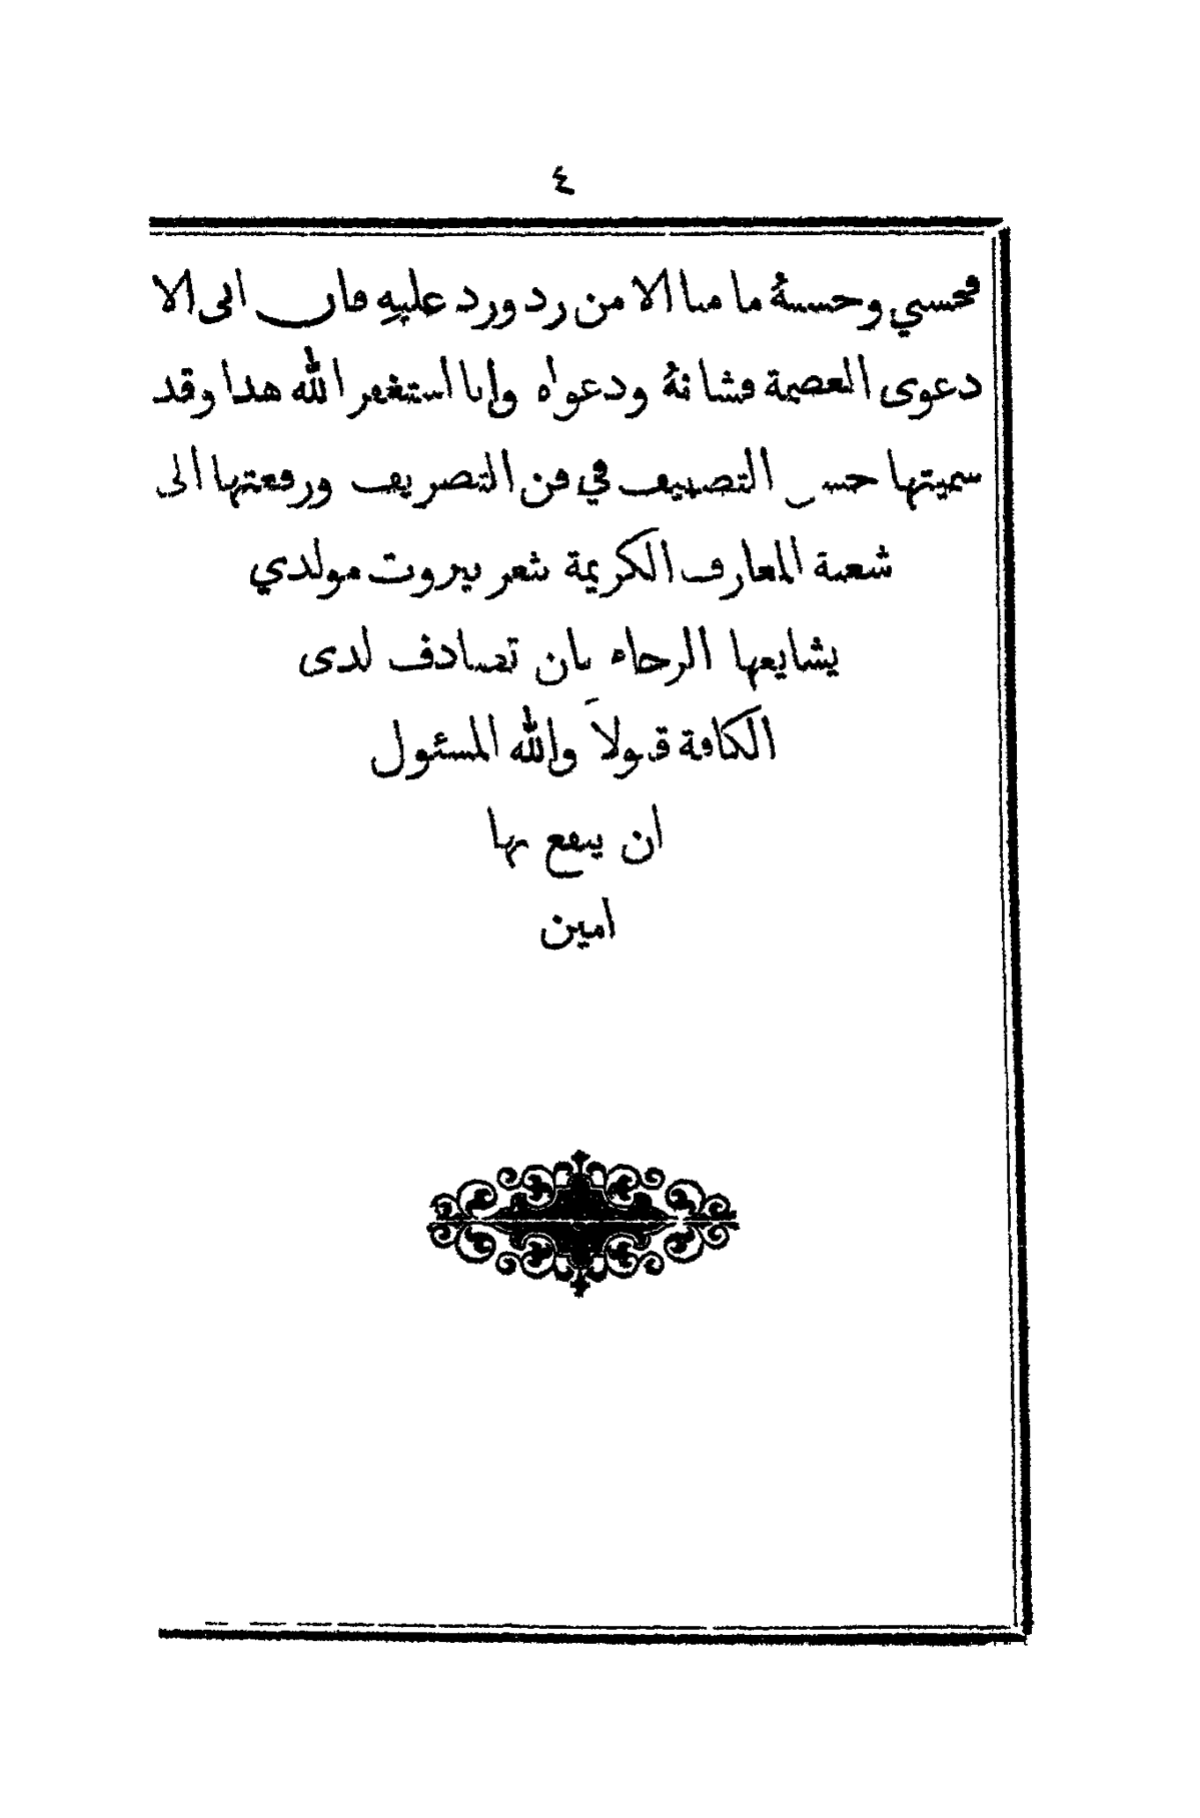 ٤
فحسبي وحسبهُ ما منا الا من رد ورد عليهِ فان ابى الا
دعوى العصمة فشانهُ ودعواه وانا استغفر الله هذا وقد
سميتها حسن التصنيف في فن التصريف ورفعتها الى
شعبة المعارف الكريمة بثغر بيروت مولدي
يشايعها الرجاء بان تصادف لدى
الكافة قبولاً والله المسئول
ان ينفع بها
امين